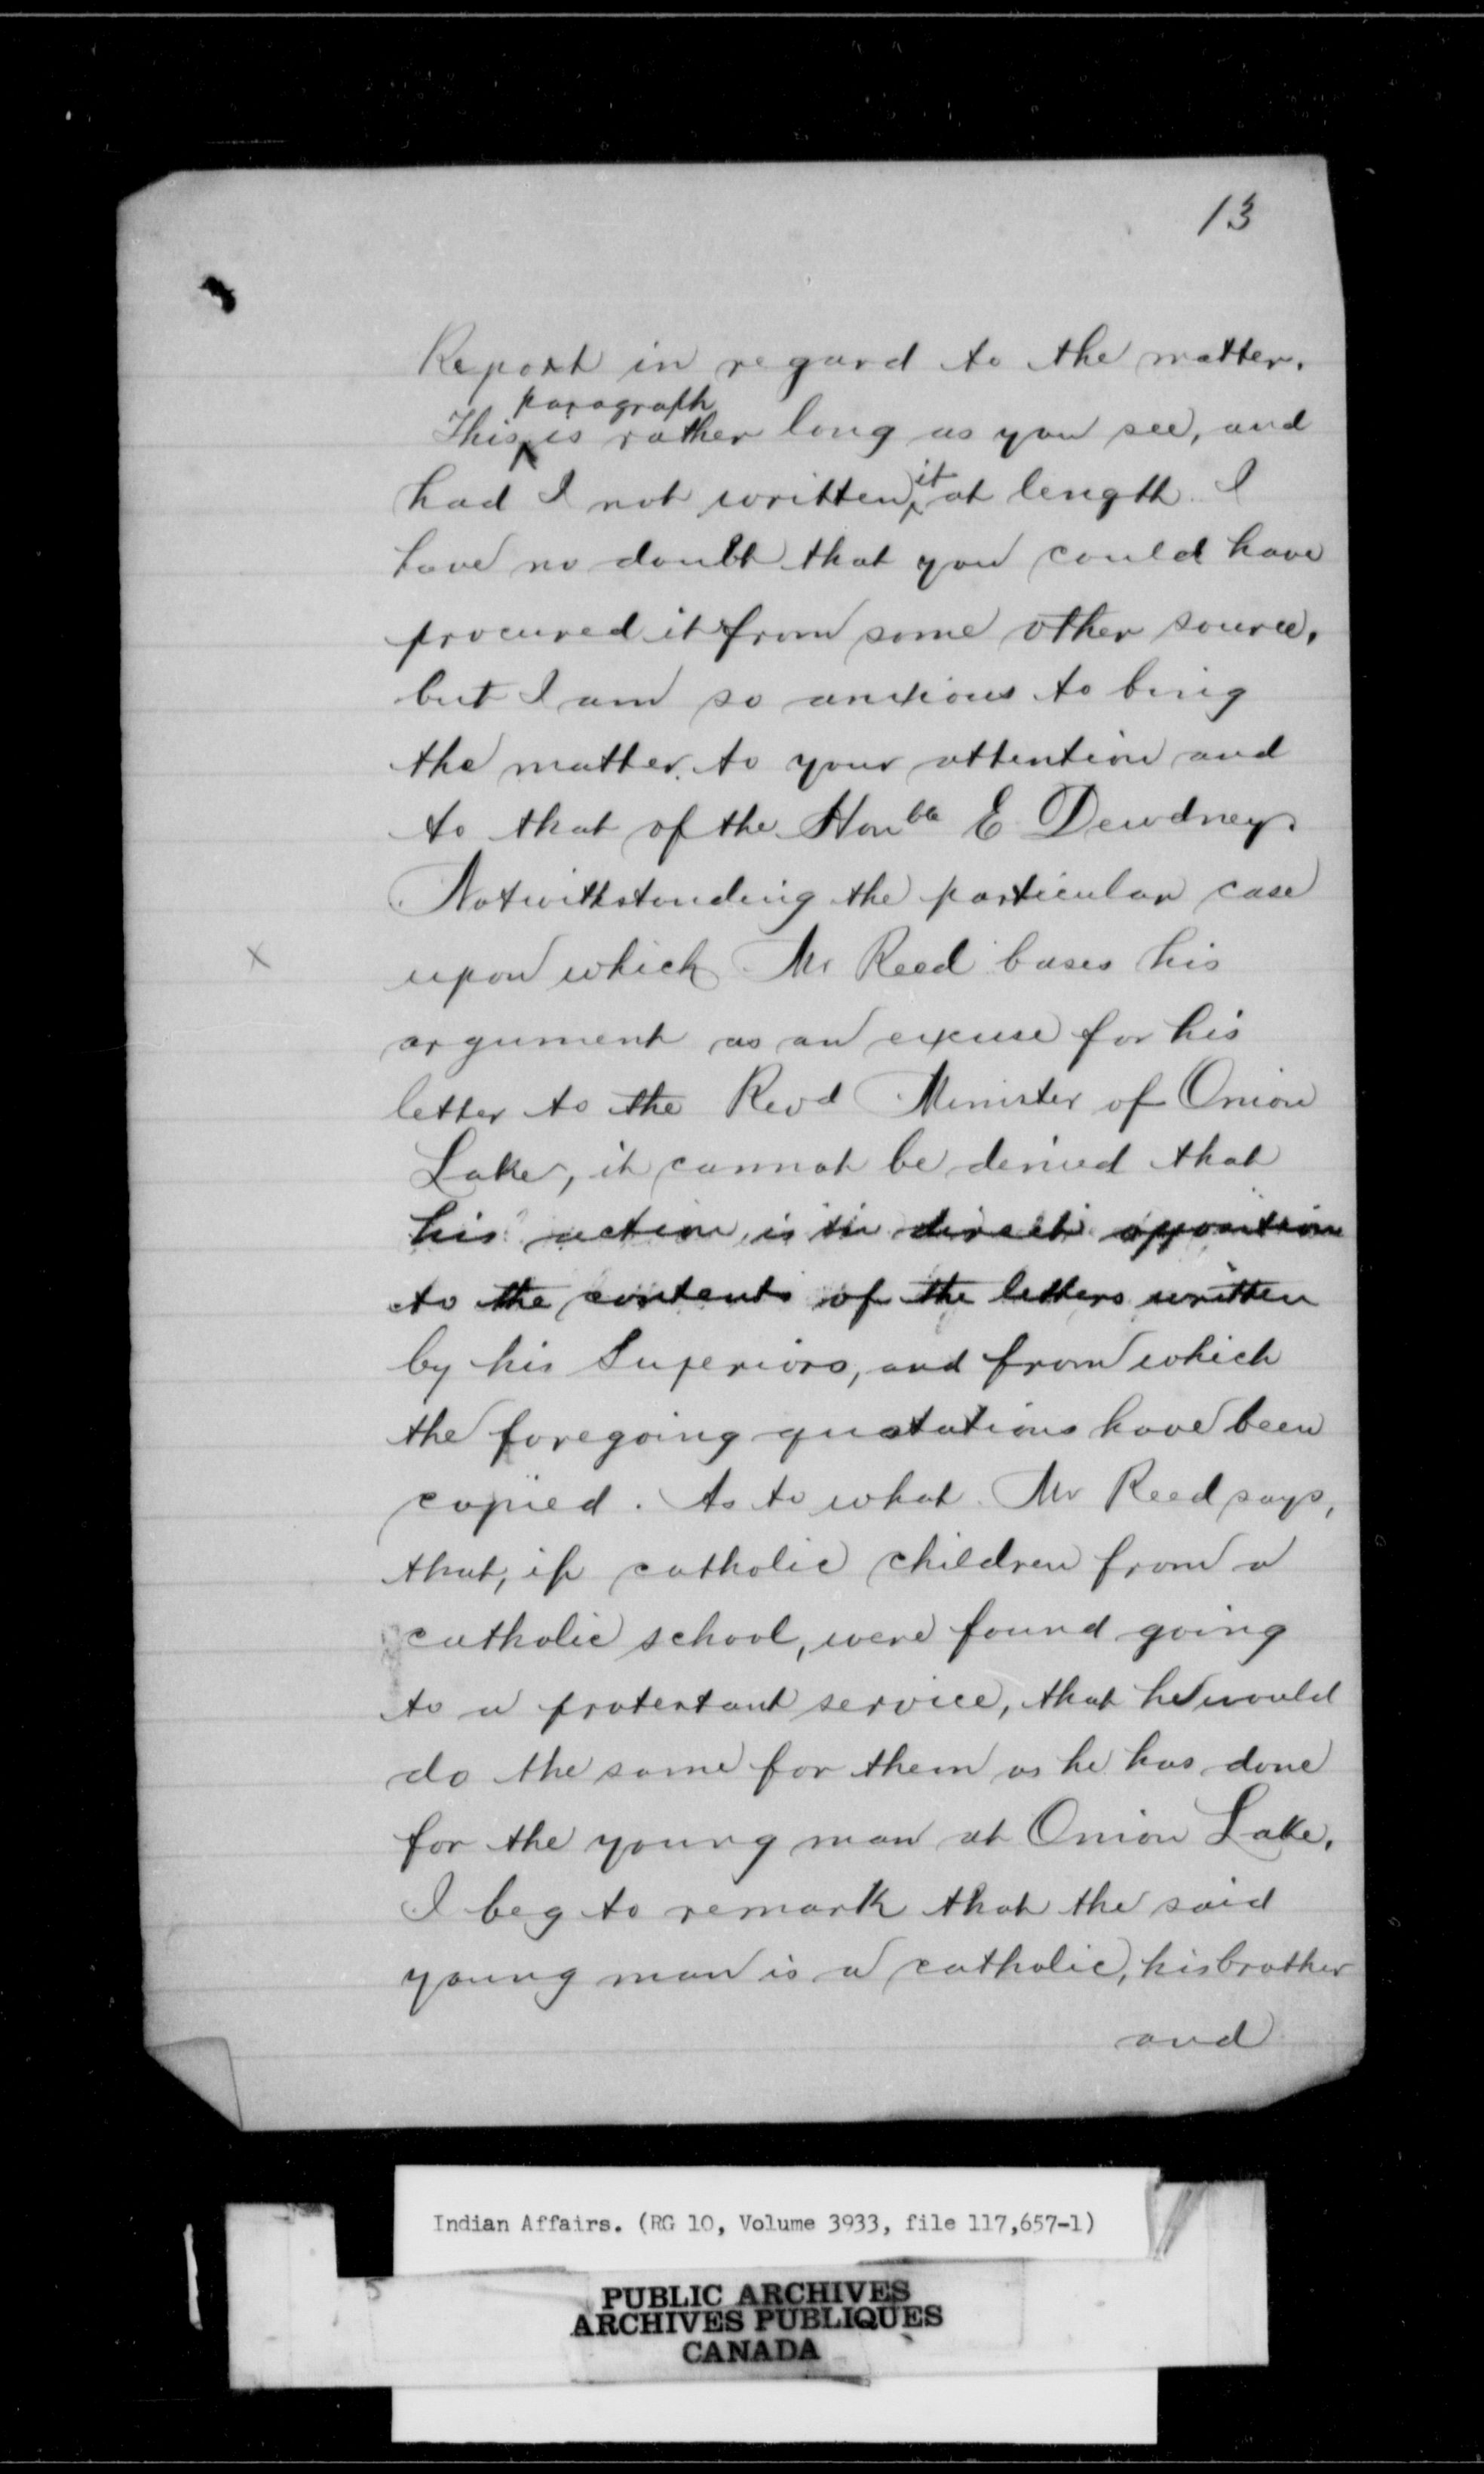 13
Report in regard to the matter.
This paragraph is rather long as you see, and
had I not written it at length I
have no doubt that you could have
procured it from some other source,
but I am so anxious to bring
the matter to your attention and
to that of the Honble E Dewdney.
Notwithstanding the particular case
x
upon which Mr Reed bases his
argument as an excuse for his
letter to the Revd Minister of Onion
Lake, it cannot be denied that
his action is in direct opposition
to the contents of the letters written
by his Superiors, and from which
the foregoing quotations have been
copied. As to what Mr Reed says,
that, if catholic children from a
catholic school, were found going
to a protestant service, that he would
do the same for them as he has done
for the young man at Onion Lake.
I beg to remark that the said
young man is a catholic, his brother
and
Indian Affairs. (RG 10, Volume 3933, file 117,657-1)
PUBLIC ARCHIVES
ARCHIVES PUBLIQUES
CANADA